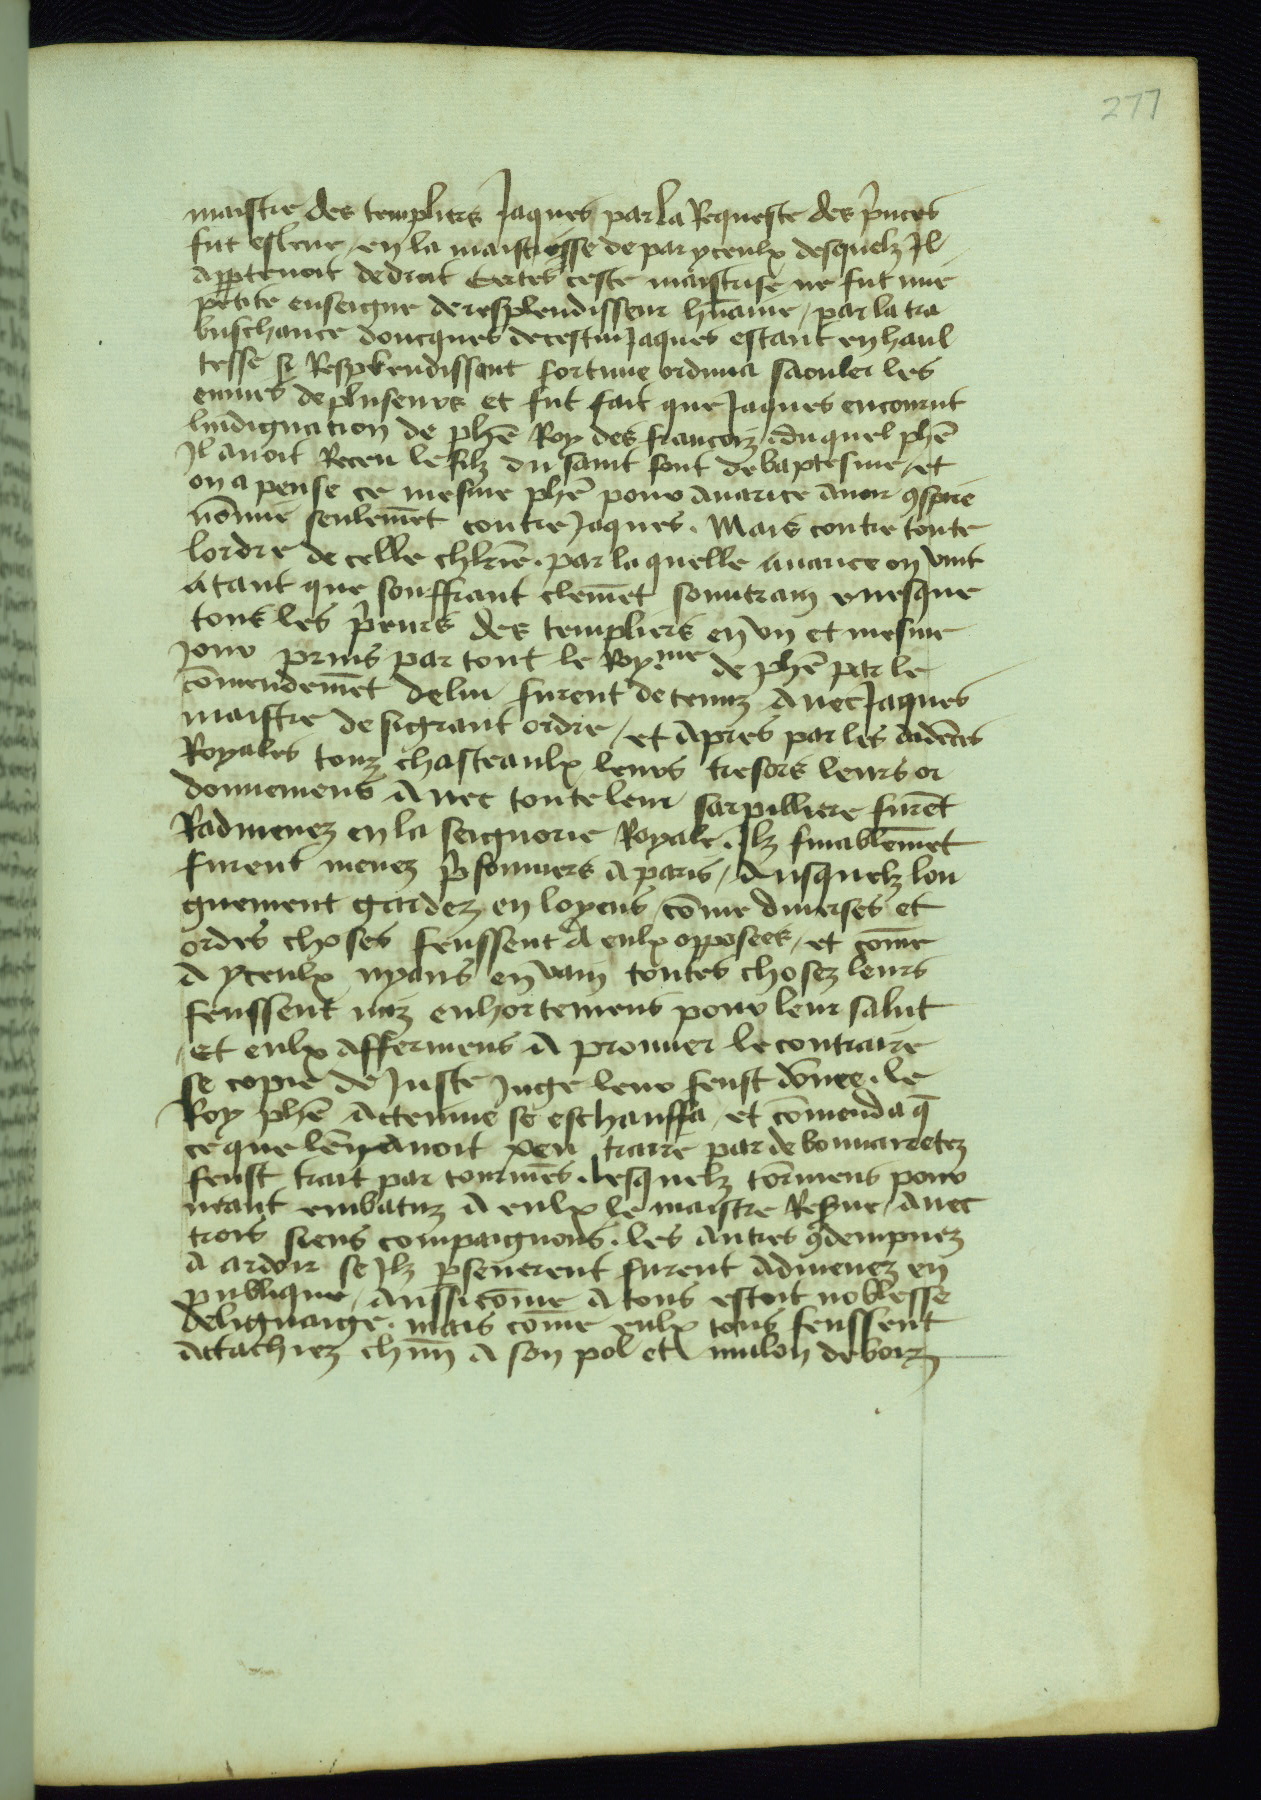 277
maistre des templiers Jaques par la Requeste des p̃nces
fut esleue / en la maistresse de par yceulx desquelz Jl
app̃tenoit de droit Certes ceste maistrise ne fut mie
petite enseigne de resplendisseur hũaine / par la tra
buschance doncques de cestui Jaques estant en haul
tesse si Resplendissant fortune ordona saouler les
enuies de pluseurs et fut fait que Jaques encourut
lindignation de phẽ Roy des francoiz. du quel phẽ
Jl auoit Receu le filz du saint font de baptesme / et
on a pense ce mesme phẽ pour auarice auoir ꝯspire
nõmie seulemẽt contre Jaques. Mais contre toute
lordre de celle chlr̃ie. par la quelle auarice on vint
a tant que souffrant clemẽt souuerain euesque
tous les p̃eurs des templiers en vn et mesme
Jour prins par tout le Royme de phẽ par le
cõmendemẽt de lui furent detenuz Auec Jaques
maistre de si grant ordre / et apres par les cadẽces
Royales touz chasteaulx leurs tresors leurs or
donnemens Auec toute leur sarpilliere furẽt
Radmenez en la seignorie Royale. Jlz finablemẽt
furent menez p̃sonniers a paris / Ausquelz lon
guement gardez en loyens / cõme diuerses et
ordes choses feussent A eulx opposees / et cõme
A yceulx nyans en vain toutes chosez leurs
feussent miz enhortemens pour leur salut
/ Et eulx affermens A prouuer le contraire
se copie de Juste Juge leur feust dõnee. le
Roy phẽ Actenme se eschauffa / et cõmenda q̃
ce que len nauoit peu traire par debonnairetez
feust trait par tourmẽs. lesquelz tormens pour
neant embatuz A eulx le maistre Reserue / Auec
trois siens compaignons. les autres ꝯdempnez
A ardoir se Jlz ꝑseuerent furent admenez en
publique / Aussi cõme A tous estoit noblesse
de lignaige. mais cõme eulx tous feussent
Attachiez chũn A son pol et mulon de boiz